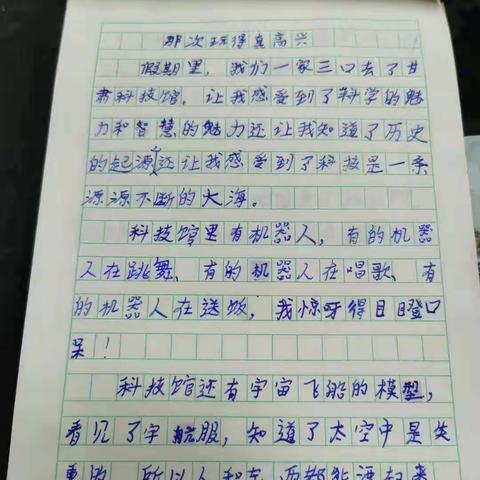 那次玩得真高兴
假期里，我们一家三口去了甘
肃科技馆。让我感受到了科学的魅
力和智慧的魅力还让我知道了历史
的起源，还让我感受到了科技是一条
源源不断的大海。
科技馆里有机器人，有的机器
人在跳舞、有的机器人在唱歌、有
的机器人在送饭，我惊呀得目瞪口
呆！
科技馆还有宇宙飞船的模型，
看见了宇航服，知道了太空中是失
重的，所以人和东西都能漂起来